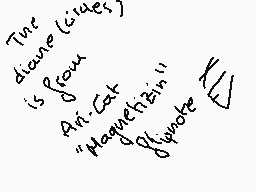 The
diane (Lirdes)
is from
Ari-Cat
"Magnetizin"
flipnote